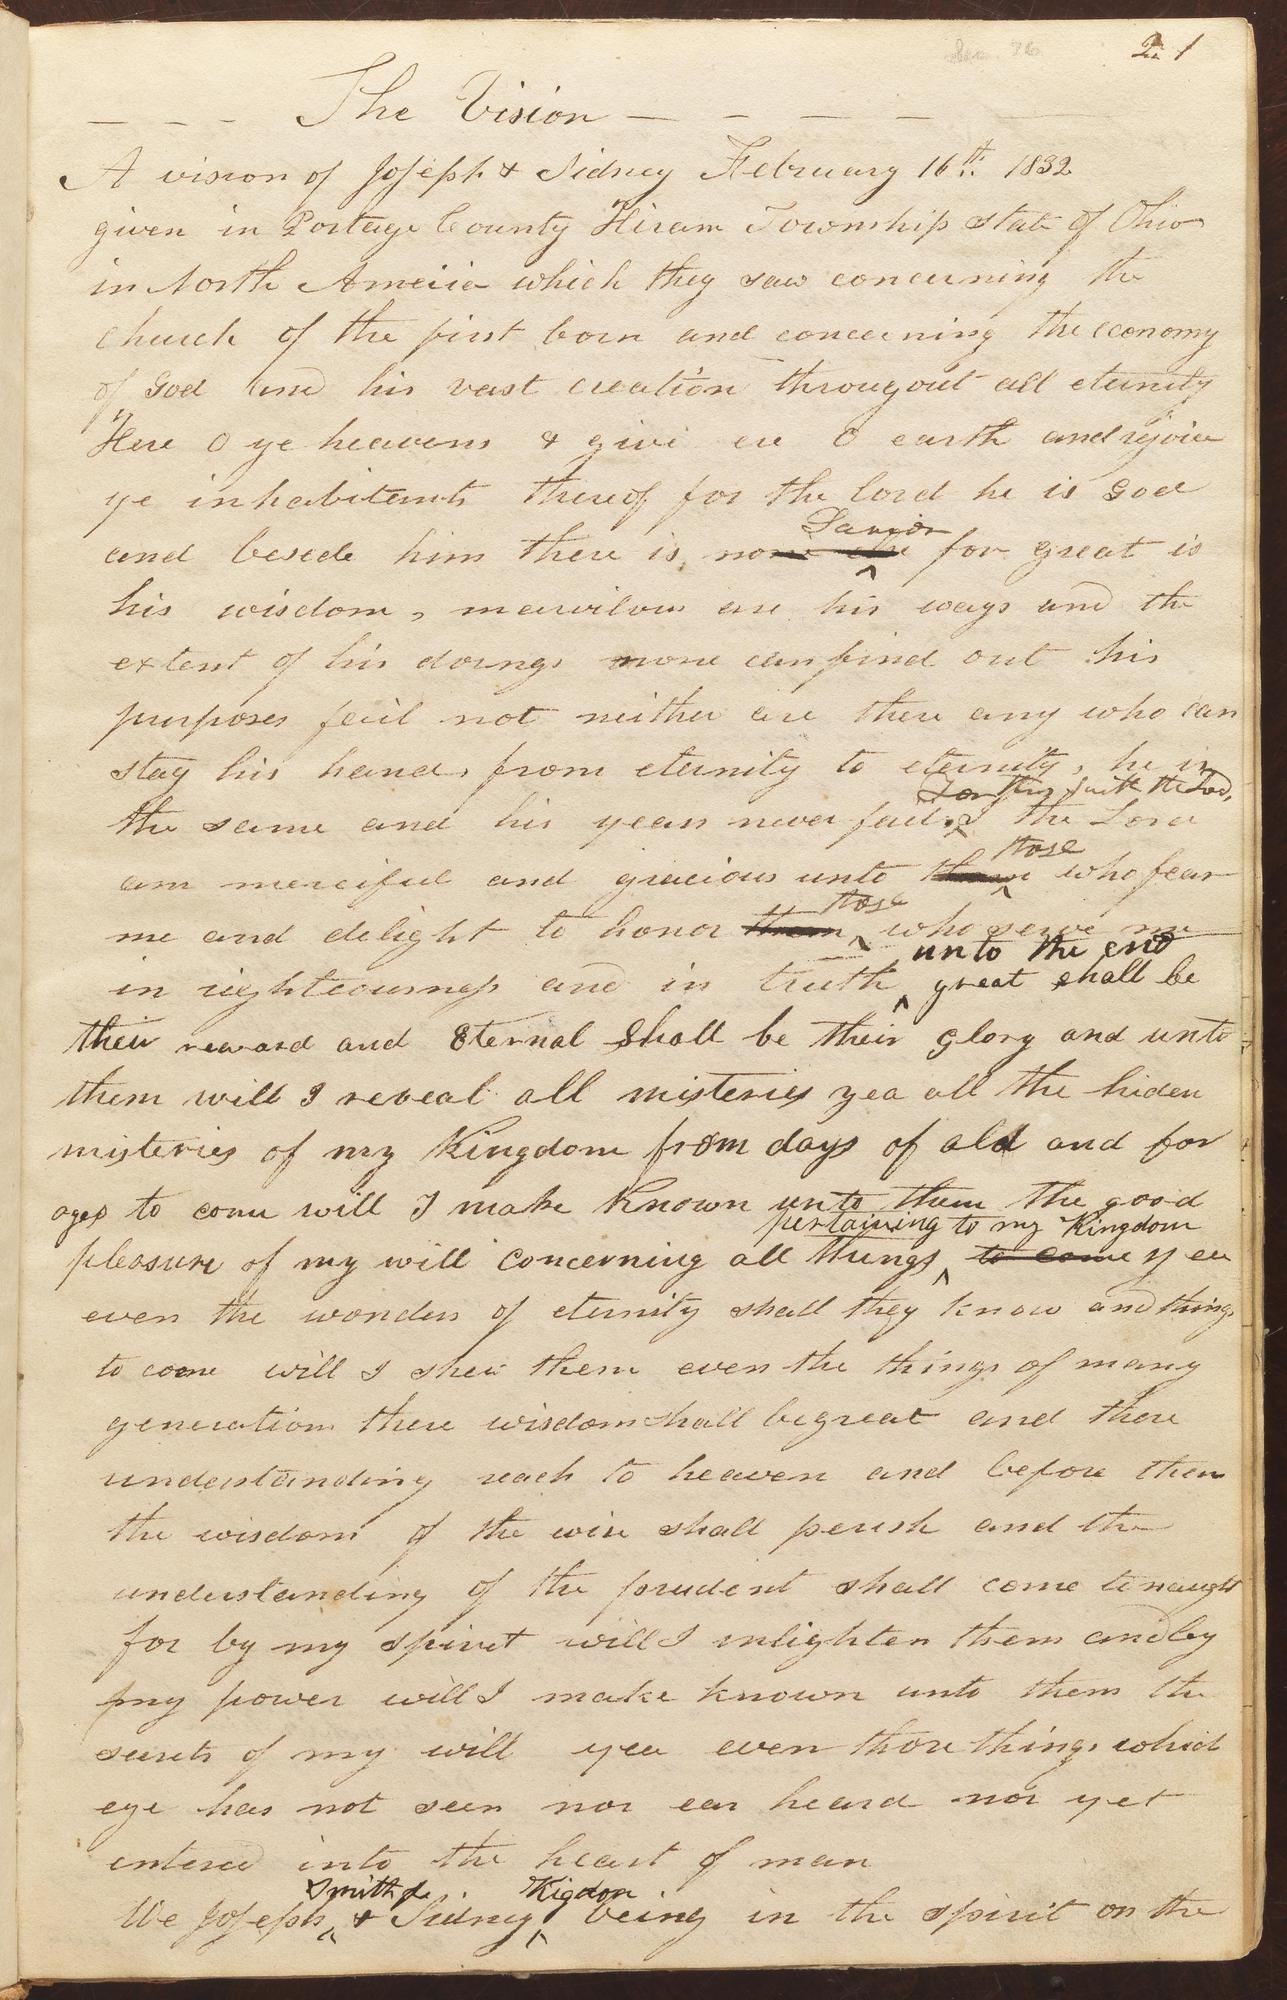 Sec. 76
2. 1
The Vision
A vision of Joseph & Sidney February 16th. 1832
given in Portage County Hiram Township state of Ohio
in North America which they saw concerning the
church of the first born and concerning the economy
of God and his vast creation througout all eternity
Here O ye heavens & give ere O earth and rejoice
ye inhabitents thereof for the lord he is God
Savior
and beside him there is none else for great is
his wisdom, marvilous are his ways and the
extent of his doings none can find out his
purposes fail not neither are there any who can
stay his hand, from eternity to eternity, he is
For thus saith the Lord,
the same and his years never fail. I the Lord
those
am merciful and gracious unto them who fear
those
me and delight to honor them who serve me
unto the end
in righteousness and in truth great shall be
their reward and Eternal Shall be their glory and unto
them will I reveal all misteries yea all the hiden
misteries of my Kingdom from days of old and for
ages to come will I make Known unto them the good
pertaining to my Kingdom
pleasure of my will concerning all things to come yea
even the wonders of eternity shall they know and things
to come will I shew them even the things of many
generations there wisdom shall be great and there
understanding reach to heaven and before them
the wisdom of the wise shall perish and the
understanding of the prudent shall come to naught
for by my spirit will I inlighten them and by
my power will I make known unto them the
secrets of my will yea even those things which
eye has not seen nor ear heard nor yet
entered into the heart of man
Smith Jr. Rigdon
We Joseph & Sidney being in the spirit on the